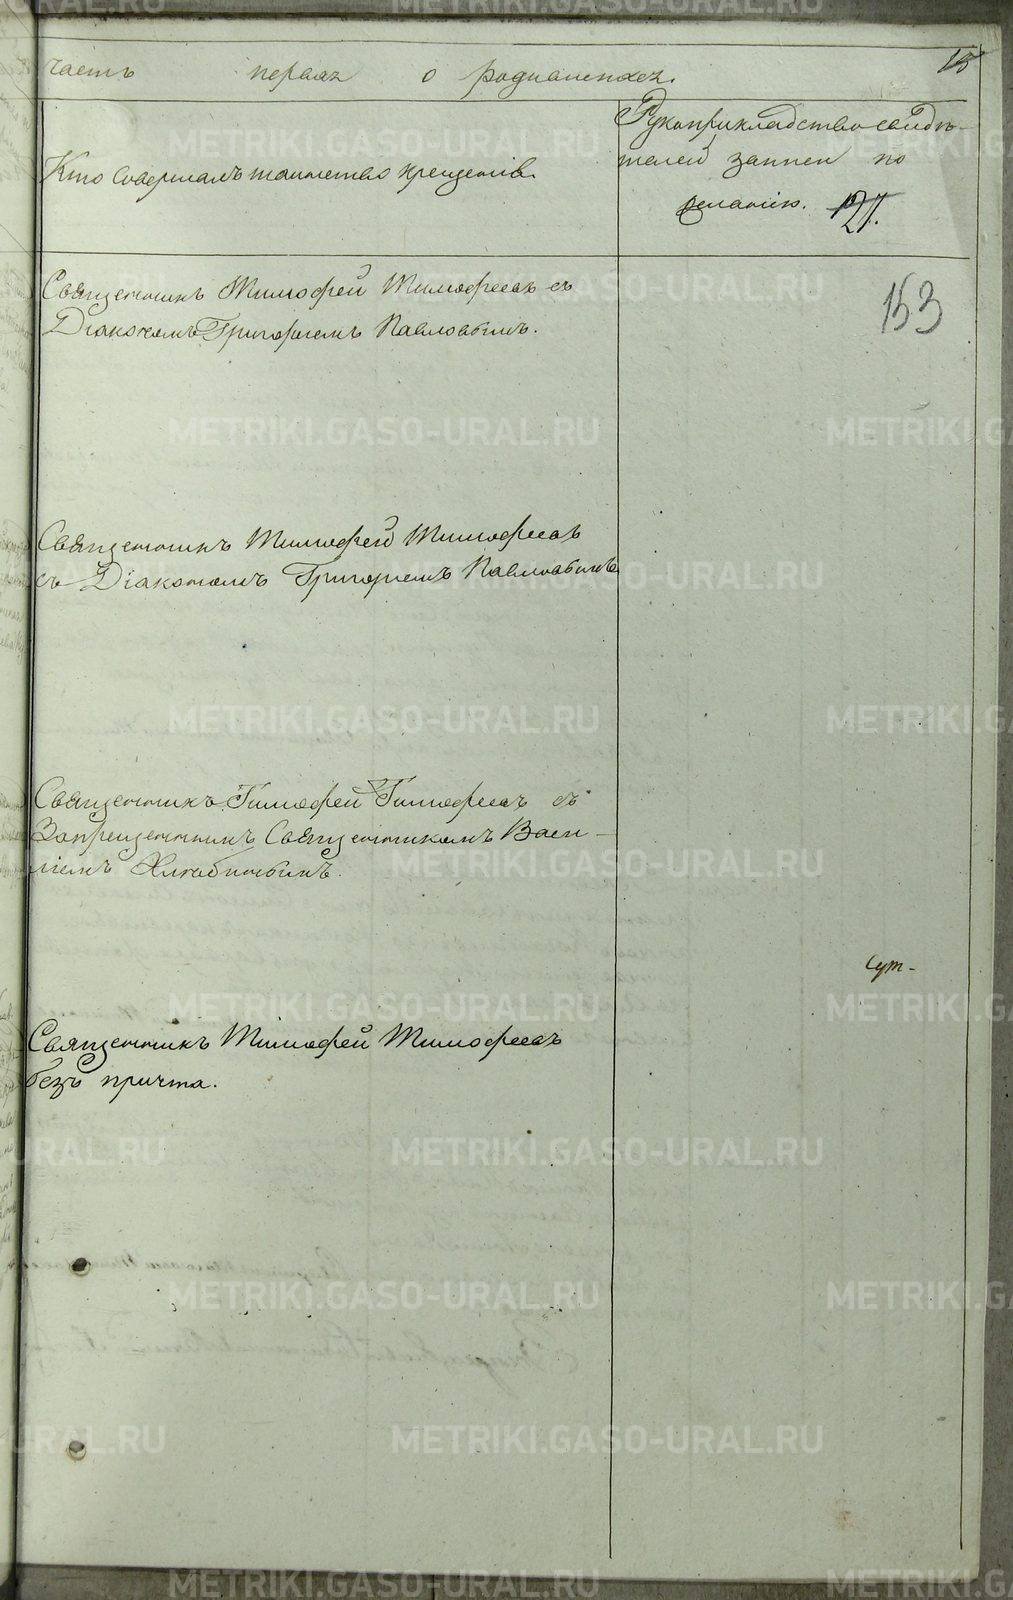 часть первая о родившихся.
Кто совершалъ таинство крещенія.
Рукоприкладство свидѣ-
телей записи по
желанію.
121.
153
Священникъ Тимофей Тимофеевъ съ
Діакономъ Григоріемъ Павловымъ.
Священникъ Тимофей Тимофеевъ
съ Діакономъ Григоріемъ Павловымъ
Священникъ Тимофей Тимофеевъ съ
Запрещеннымъ Священникомъ Васи-
ліемъ Хлѣбинымъ.
Священникъ Тимофей Тимофеевъ
безъ причта.
METRIKI.GASO-URAL.RU